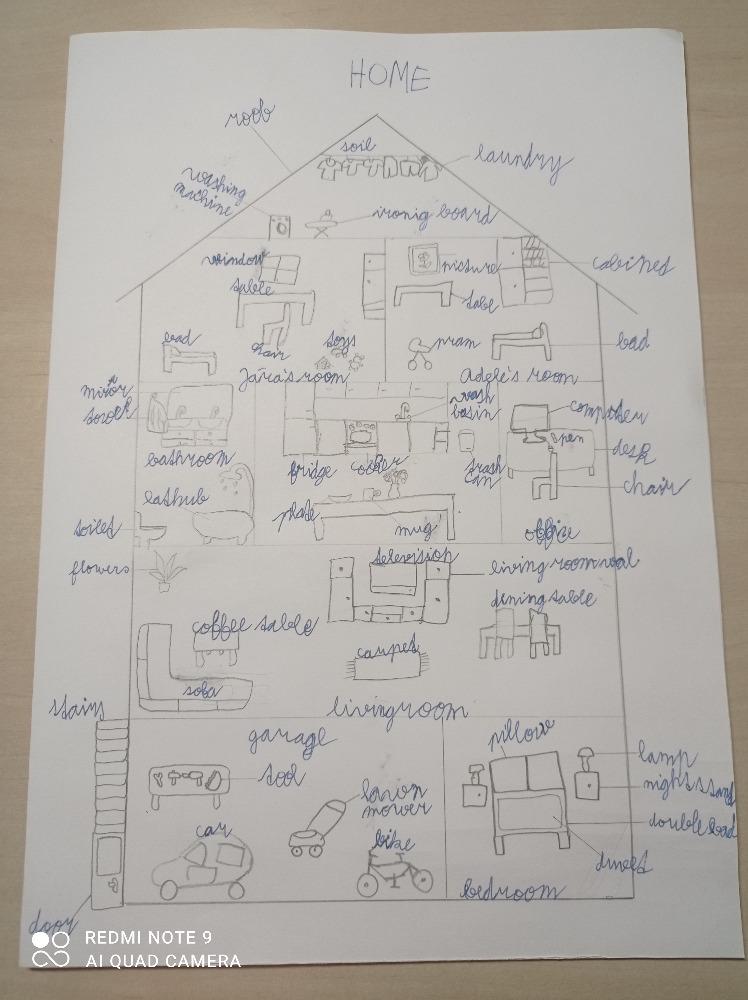 HOME
roof
soil
laundry
washing
machine
ironig board
window
picture
cabinet
table
tabe
toys
bad
chair
pram
bad
Jára's room
Adele's room
mirror
wash
basin
computher
open
desk
bathroom
fridge
cooker
trash
can
chair
bathub
plate
mug
toilet
office
flowers
television
living room wal
dining table
coffee table
carpet
sofa
stairs
livingroom
garage
pillow
tool
lamp
night stand
lawn
mower
car
bike
double bad
duvet
bedroom
door
REDMI NOTE 9
AI QUAD CAMERA